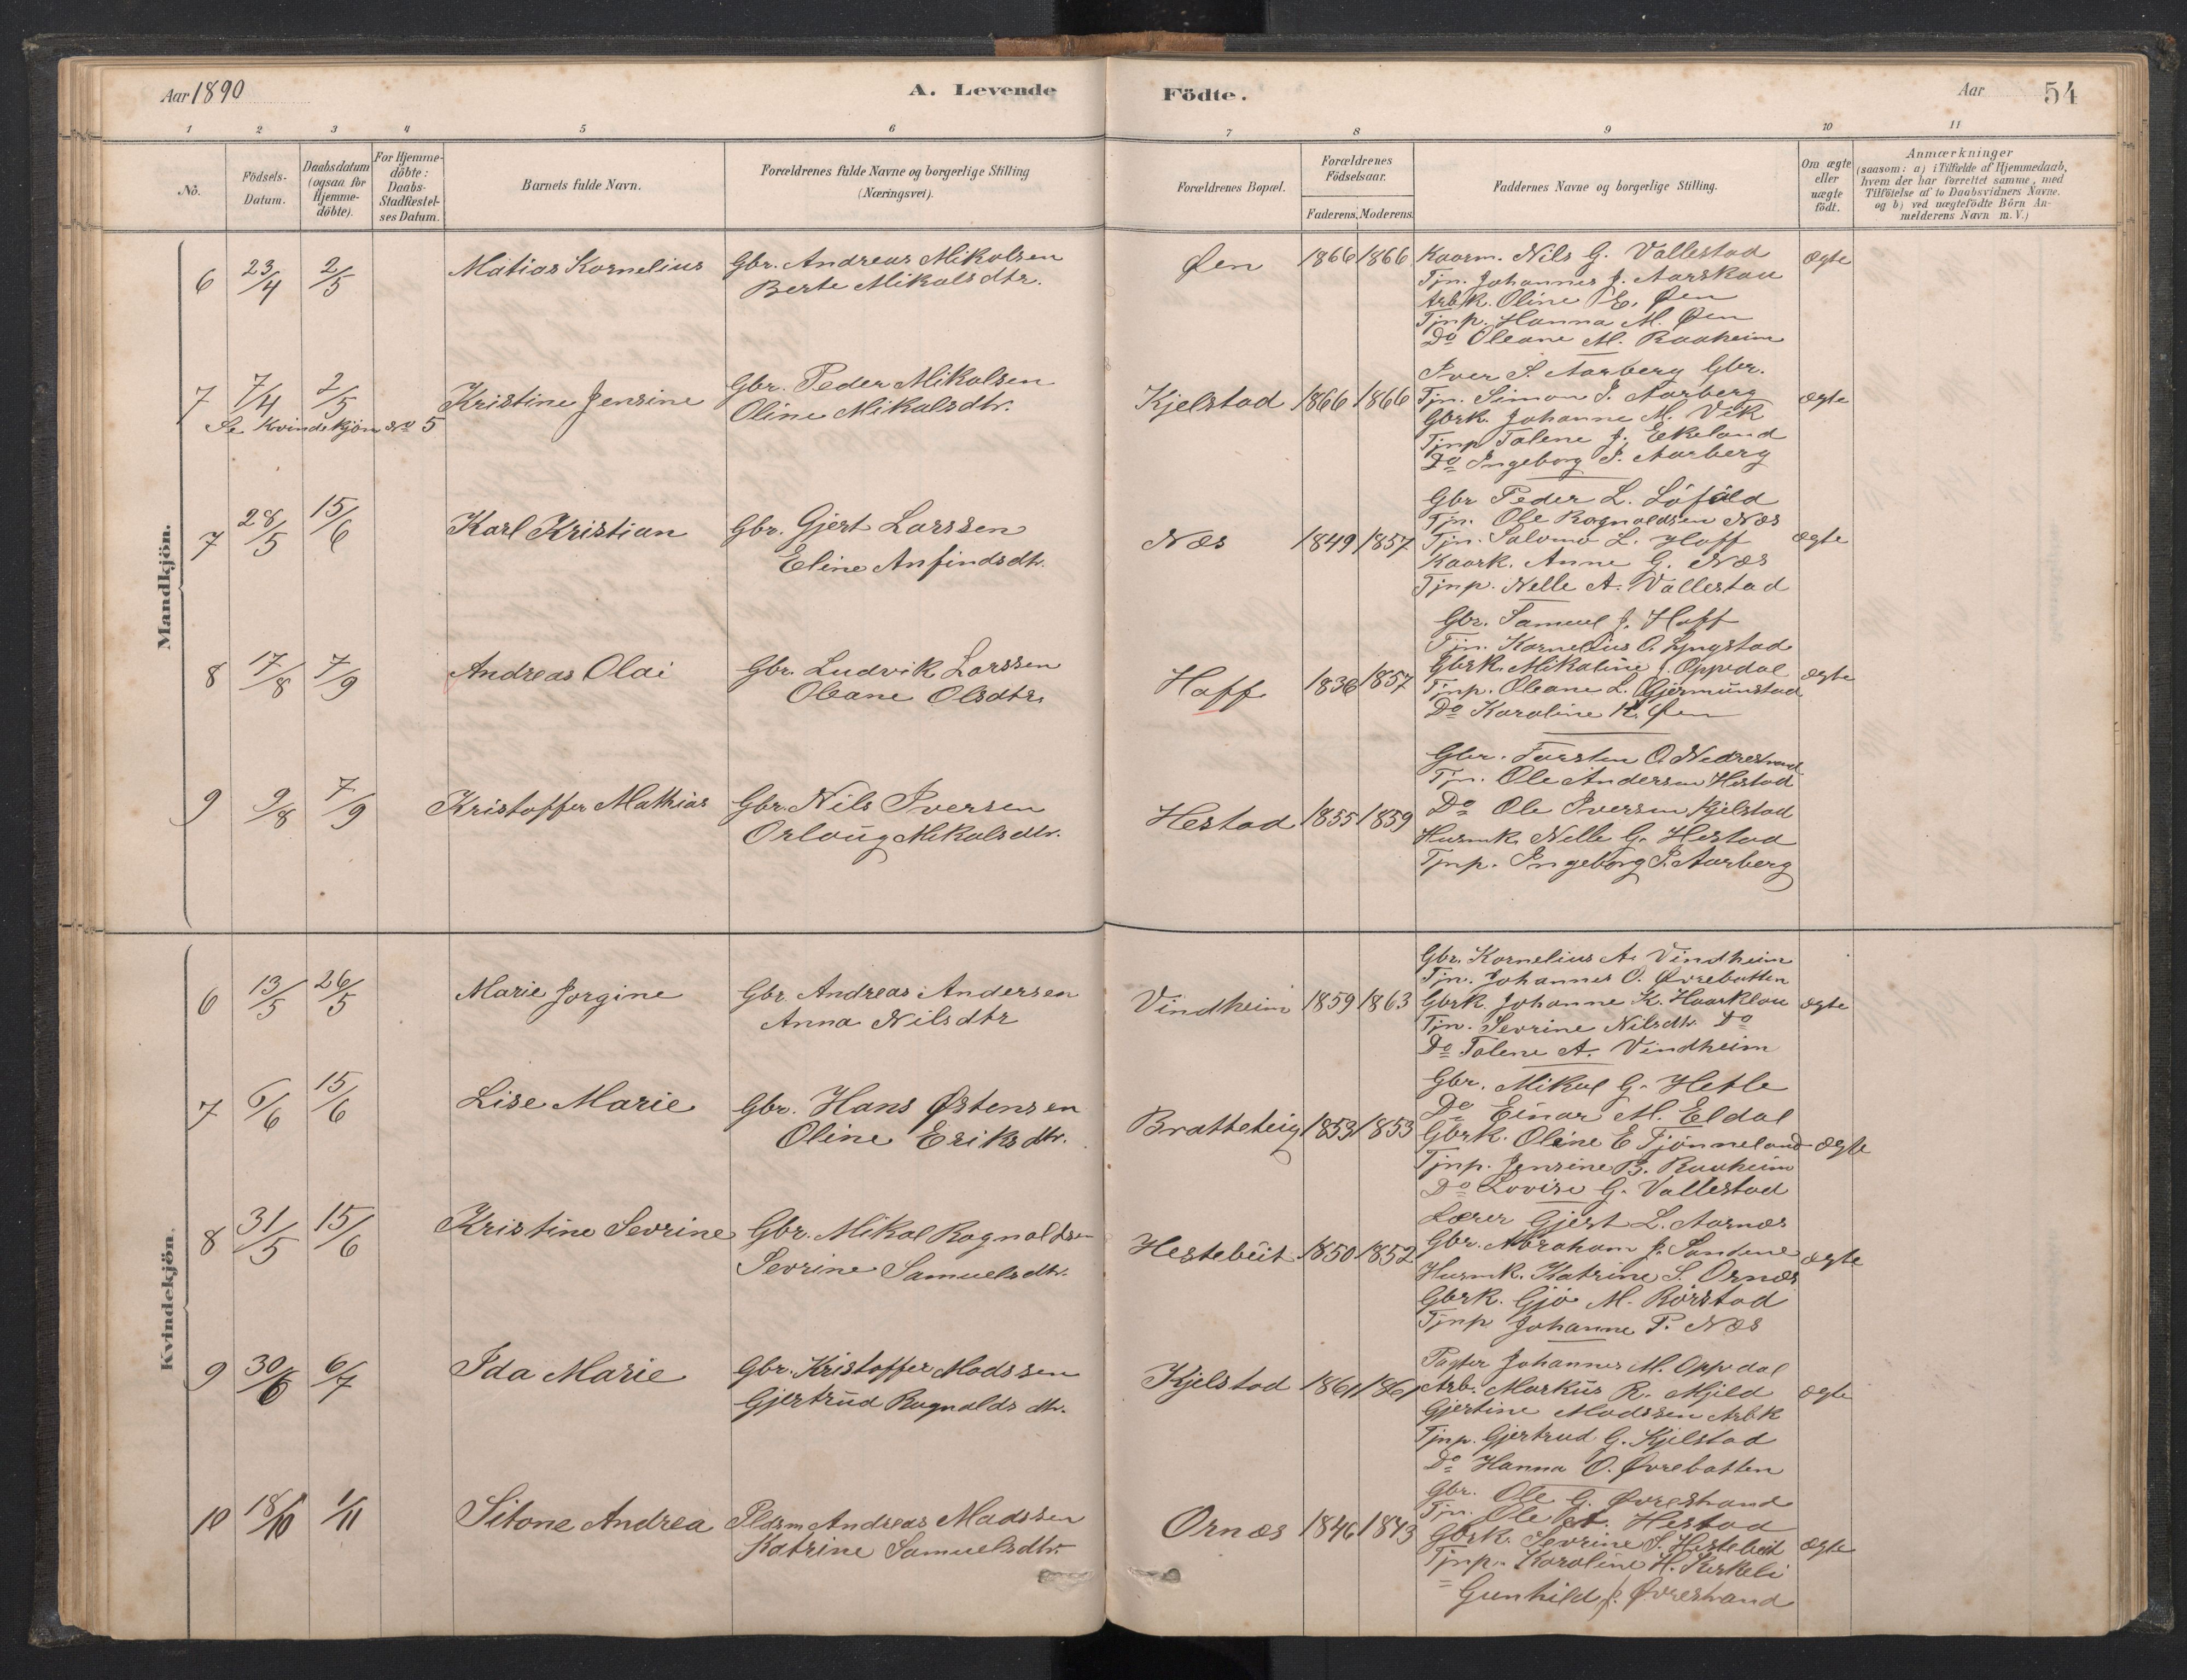 Aar 1890
A. Levende
Födte.
Aar
54
1 2 3 4 5 6 7 8 9 10 11
No.
Födsels-
Datum.
Daabsdatum
(ogsaa for
Hjemme-
döbte).
For Hjemme-
döbte:
Daabs-
Stadfæstel-
ses Datum.
Barnets fulde Navn.
Forældrenes fulde Navne og borgerlige Stilling
(Næringsvei).
Forældrenes Bopæl.
Forældrenes
Födselsaar.
Faderens. Moderens.
Faddernes Navne og borgerlige Stilling.
Om ægte
eller
uægte
født.
Anmærkninger
(saasom: a) i Tilfælde af Hjemmedaab,
hvem der har forrettet samme, med
Tilföielse af to Daabsvidners Navne,
og b) ved uægtefödte Börn An-
melderens Navn m.V.)
Mandkjön.
6 23/4 2/5 Matias Kornelius Gbr. Andreas Mikalsen
Berte Mikalsdtr.
Øen 1866 1866
Kaarm. Nils G. Vallestad
Tjn. Johannes J. Aarskau
Arbk. Oline E. Øen
Tjnp. Hanna M. Øen
Do Oleane M. Raaheim
ægte
7 7/4 2/5 Kristine Jensine Gbr. Peder Mikalsen
Oline Mikalsdtr.
Se Kvindekjøn No 5
Kjelstad 1866 1866
Iver S. Aarberg Gbr.
Tjn. Simon I. Aarberg
Gbrk. Johanne M. Vik
Tjnp Talene J. Ekeland
Do Ingeborg I. Aarberg
ægte
7 28/5 15/6 Karl Kristian Gbr. Gjert Larssen
Eline Anfindsdtr.
Næs 1849 1857
Gbr Peder L. Löfald
Tjn. Ole Ragnaldsen Næs
Tjn. Salomo L. Hoff
Kaark. Anne G. Næs
Tjnp. Nelle A. Vallestad
ægte
8 17/8 7/9 Andreas Olai Gbr. Ludvik Larssen
Oleane Olsdtr.
Haff 1836 1857
Gbr. Samuel J. Hoff
Tjn. Kornelius O. Lyngstad
Gbrk. Mikaline J. Oppedal
Tjnp. Oleane L. Gjermunstad
Do Karoline K. Øen
ægte
9 9/8 7/9 Kristoffer Mathias Gbr. Nils Iversen
Orloug Mikalsdtr.
Hestad 1855 1859
Gbr. Torsten O. Nedrestrand
Tjn. Ole Andersen Hestad
Do Ole Iversen Kjelstad
Husmk. Nelle G. Hestad
Tjnp. Ingeborg I. Aarberg
Kvindekjön.
6 13/5 26/5 Marie Jorgine Gbr. Andreas Andersen
Anna Nilsdtr
Vindheim 1859 1863
Gbr. Kornelius A. Vindheim
Tjn. Johannes O. Øvrebotten
Gbrk Johanne K. Haarklau
Tjn. Sevrine Nilsdtr. Do
Do Talene A. Vindheim
ægte
7 6/6 15/6 Lise Marie Gbr. Hans Østensen
Oline Eriksdtr.
Bratteteig 1853 1853
Gbr. Mikal G. Hetle
Do Einar M. Eldal
Gbrk. Oline E Tjønneland
Tjnp. Jensine B. Raaheim
Do Lovise G. Vallestad
ægte
8 31/5 15/6 Kristine Sevrine Gbr. Mikal Ragnaldsen
Sevrine Samuelsdtr.
Hestebeit 1850 1852
Lærer Gjert L. Aarnæs
Gbr. Abraham J. Sandene
Husmk. Katrine S. Ornæs
Gbrk. Gjø M. Rörstad
Tjnp Johanne P. Næs
ægte
9 30/6 6/7 Ida Marie Gbr. Kristoffer Madssen
Gjertrud Ragnaldsdtr.
Kjelstad 1861 1861
Pagter Johannes M. Oppedal
Arb. Markus R. Mjeld
Gjertine Madssen Arbk
Tjnp. Gjertrud G. Kjelstad
Do Hanna O. Øvrebotten
ægte
10 18/10 1/11 Sitone Andrea Pldsm Andreas Madssen
Katrine Samuelsdtr.
Ornæs 1846 1843
Gbr. Ole G. Øvrestrand
Tjn. Ole A. Hestad
Gbrk. Sevrine S. Hestebeit
Tjnp. Karoline H. Kirkeli
= Gunhild J. Øvrestrand
ægte